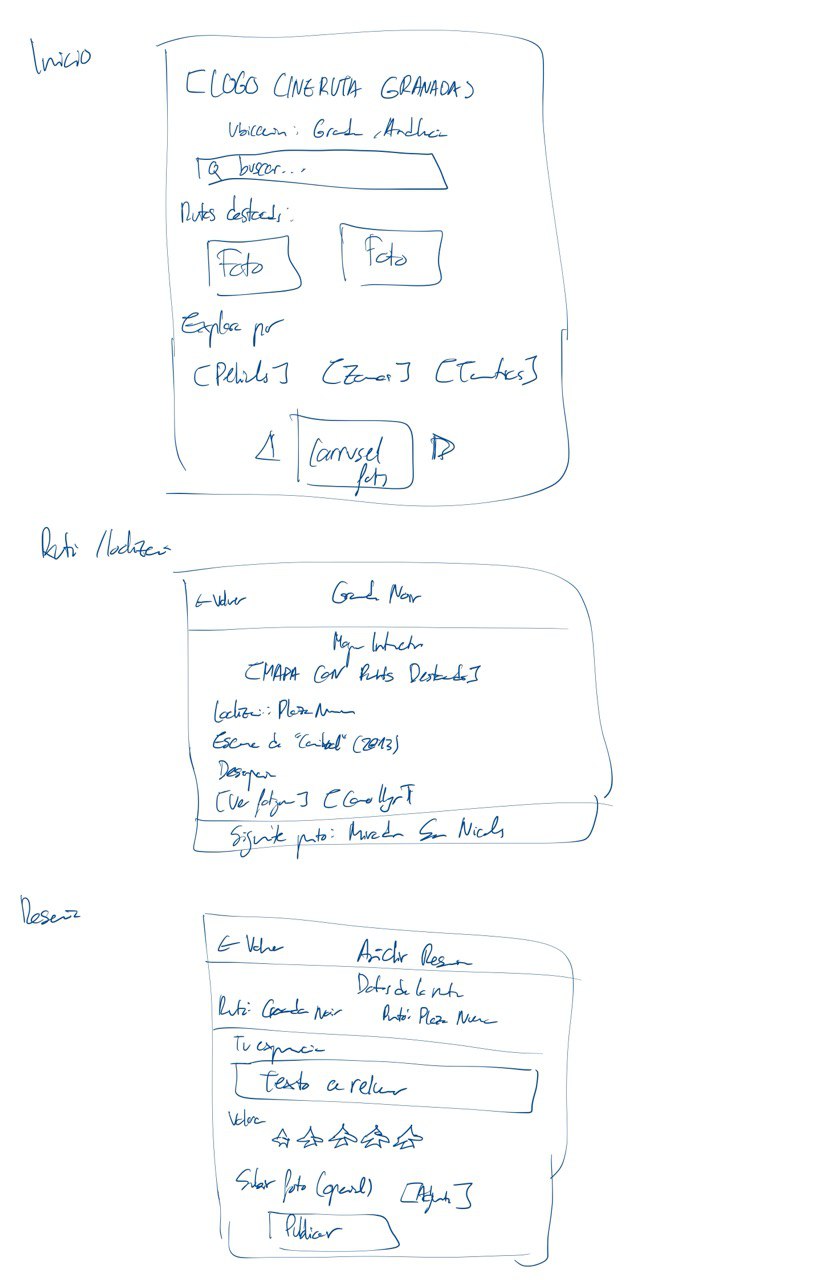 Inicio
[LOGO CINERUTA GRANADA]
Ubicación: Granada, Andalucía
buscar...
Rutas destacads:
Foto Foto
Explora por
[Películs] [Zonas] [Temátics]
Carrusel
fots
Ruta /localización
← Volver Granada Noir
Mapa Interactivo
[MAPA CON Punts Destacads]
Localización: Plaza Nueva
Escena de (2013)
[Ver ] [Como llegar]
Siguiente punto: Mirador San Nicolás
Reseña
← Volver Añadir Reseña
Datos de la ruta
Ruta: Granada Noir Punto: Plaza Nueva
Tu experiencia
Texto a rellenar
Valora
Subir foto (opcional) [Adjuntar]
Publicar